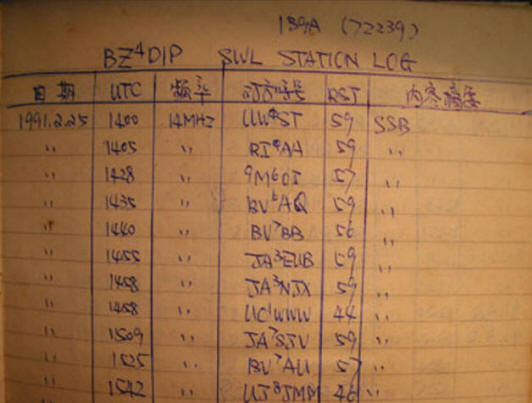 139A (72239)
BZ4DIP SWL STATION LOG
日期 UTC 频率 对方呼号 RST 内容摘要
1991.2.25 1400 14MHZ UW0ST 59 SSB
〃 1405 〃 RI0AA 59 〃
〃 1428 〃 9M6OI 57 〃
〃 1435 〃 BV6AQ 59 〃
〃 1440 〃 BV7BB 56 〃
〃 1455 〃 JA3EUB 59 〃
〃 1458 〃 JA3NJX 59 〃
〃 1458 〃 UC1WWW 44 〃
〃 1509 〃 JA7SJV 59 〃
〃 1525 〃 BV7AU 57 〃
〃 1542 〃 UJ8JMM 46 〃